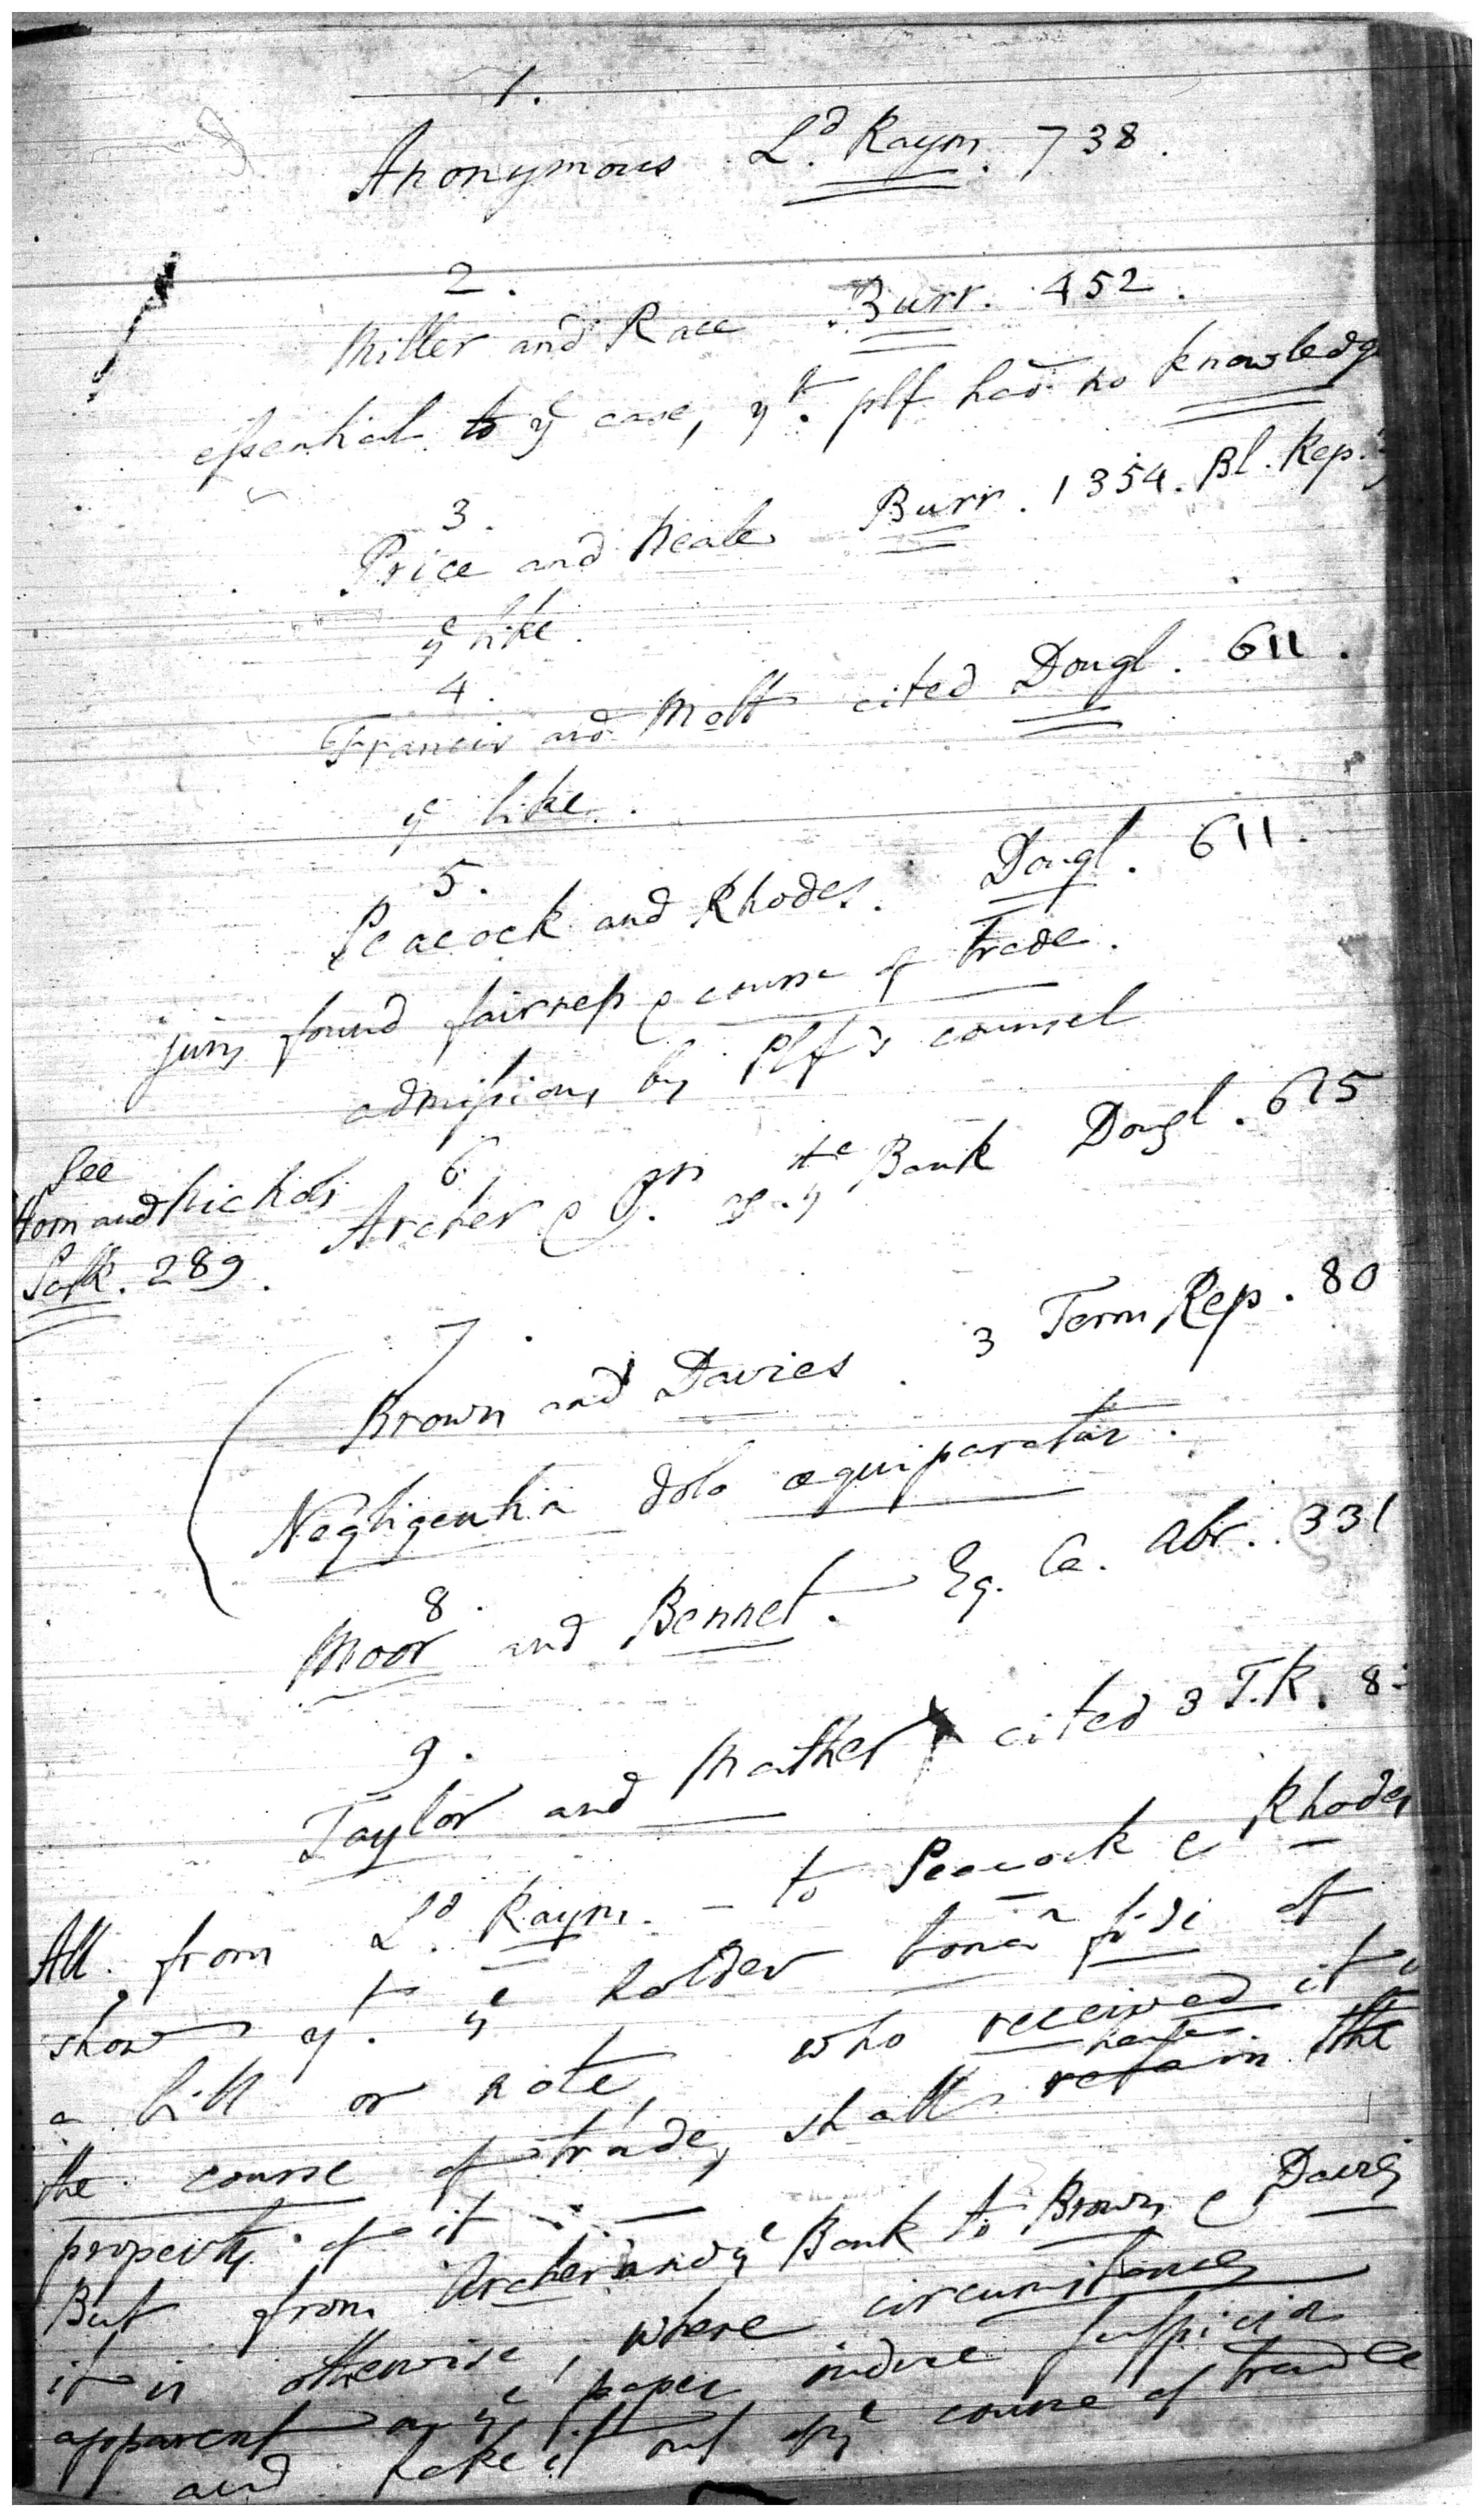 1.
Anonymous Ld. Raym. 738.
2.
Miller and Race Burr. 452.
essential to ye case, yt. plf had no knowledge
3.
Price and Neale Burr. 1354. Bl. Rep.
ye like.
4.
Francis and Mott cited Dougl. 611.
ye like.
5.
Peacock and Rhodes. Dougl. 611.
jury found fairness & course of trade.
admissions by Plf's counsel
6.
Archer & Bank Dougl. 615
See
Horn and Nichols
Salk. 289.
7.
Brown and Davies. 3 Term Rep. 80
Negligentia dolo æquiparatur.
8.
Moor and Bennet. Eq. Ca. Abr. 331
9.
Taylor and Mather cited 3 T.R. 8
All from Ld. Raym. - to Peacock & Rhodes
show yt. ye holder bonâ fide of
a bill or note, who received it
the course of trade, shall retain have the
property of it. —
But from Archer and ye Bank to Brown & Davies
it is otherwise, where circumstances
apparent on ye paper induce suspicion
and take it out of ye course of trade